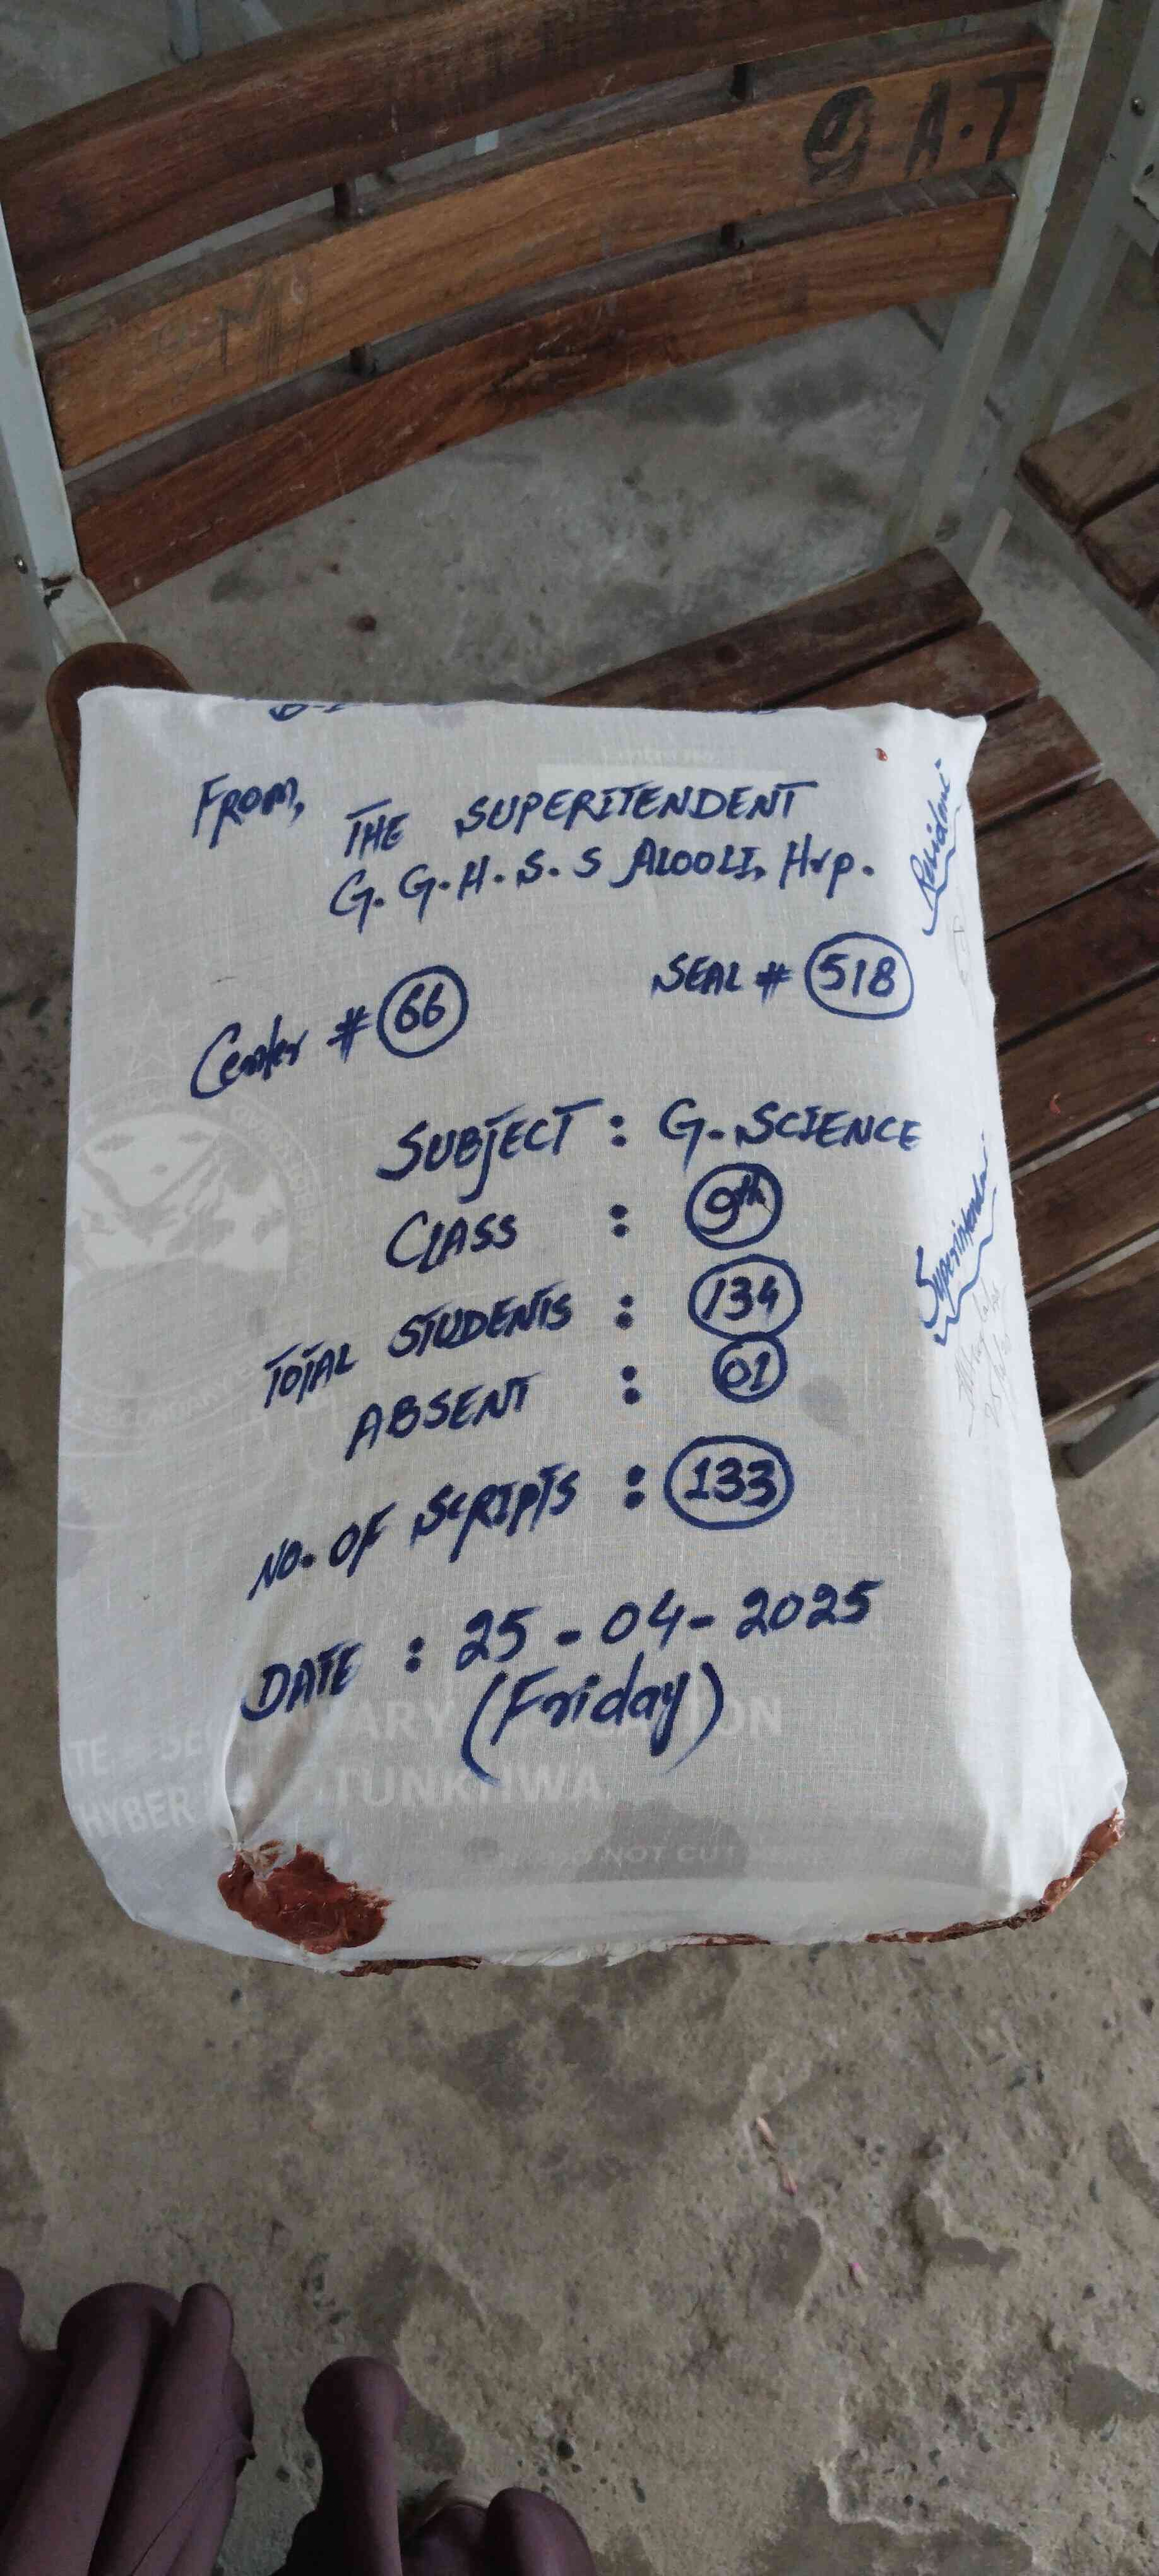 G.A.T
FROM,
THE SUPERITENDENT
G.G.H.S.S ALOOLI, Hrp.
SEAL # 518
Center # 66
SUBJECT : G. SCIENCE
CLASS : 9th
TOTAL STUDENTS : 134
ABSENT : 01
NO. OF SCRIPTS : 133
DATE : 25-04-2025
(Friday)
Resident
Superintendent
TUNKHWA
HYBER
DO NOT CUT